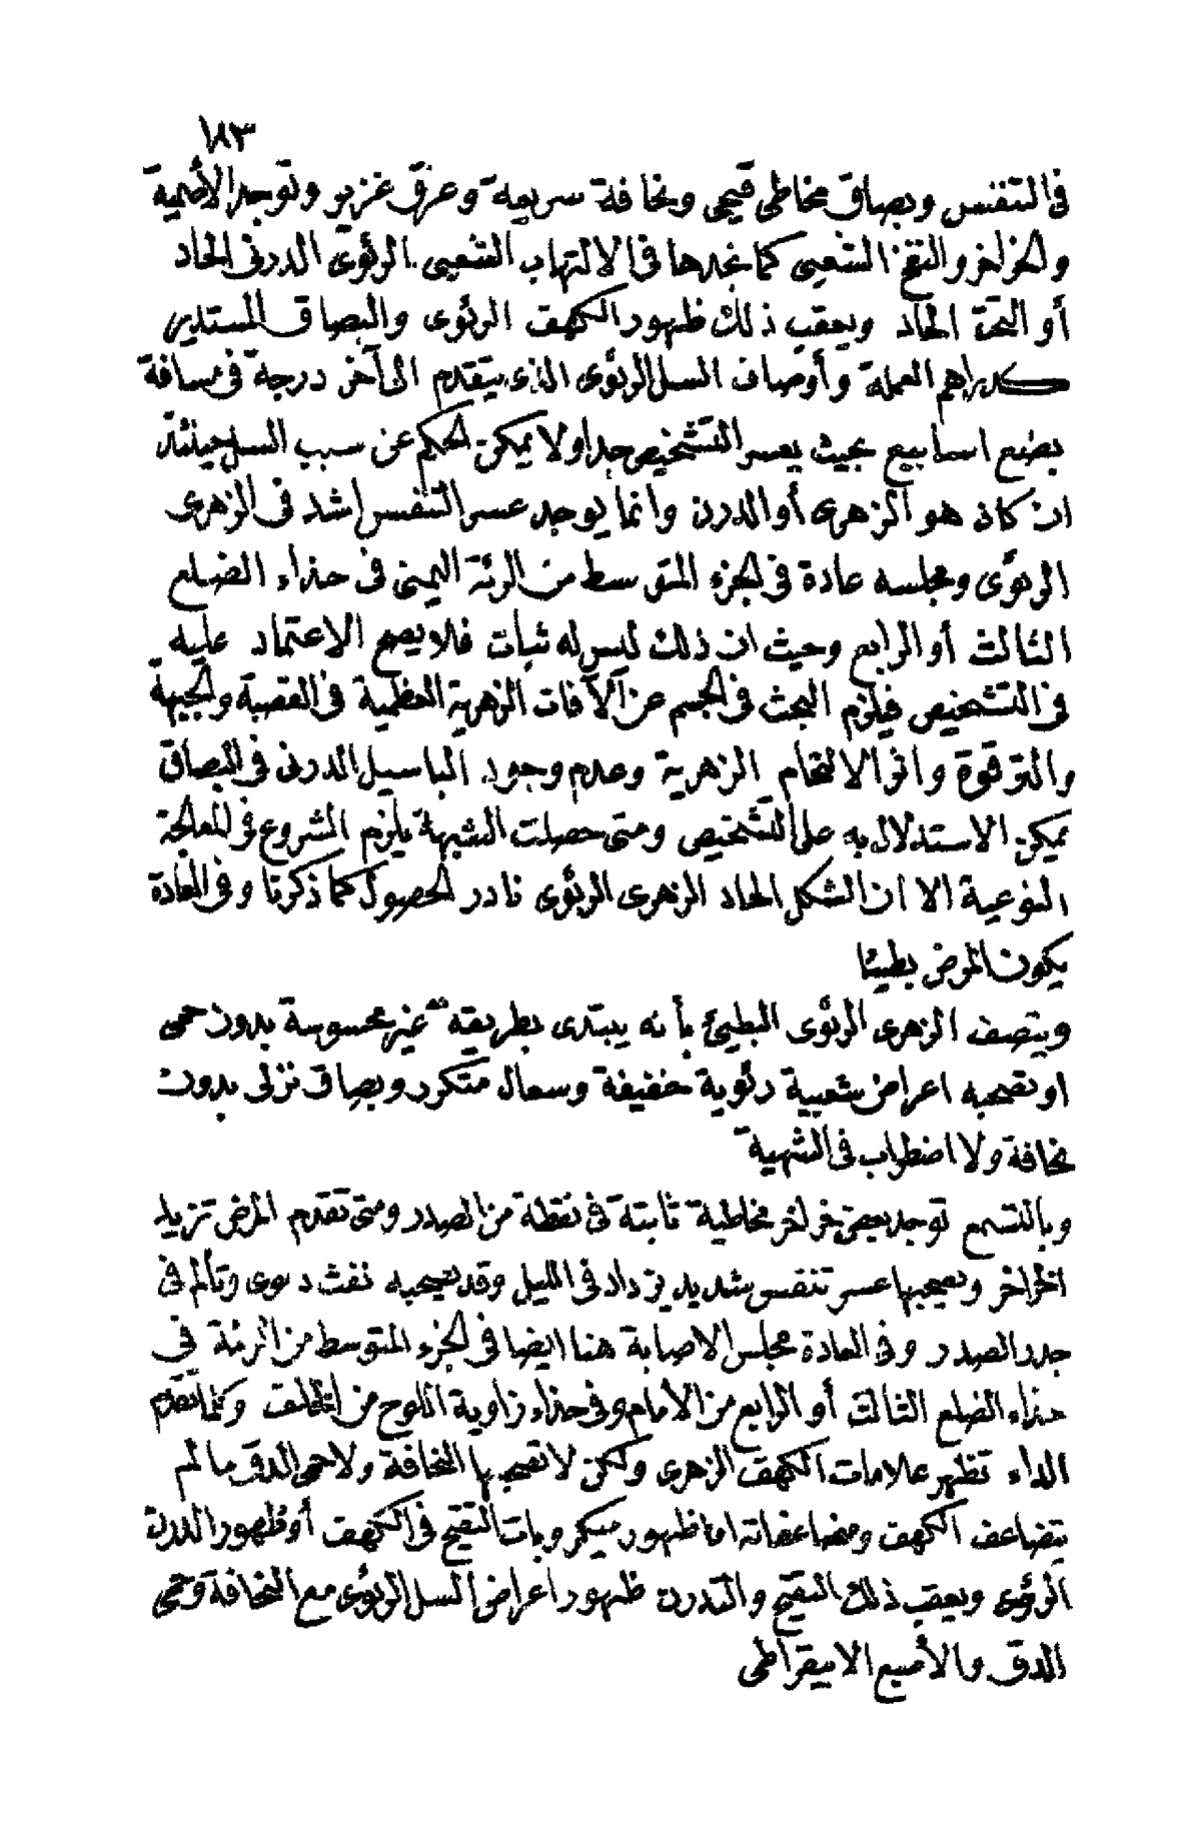 ١٨٣
فى التنفس وبصاق مخاطى قيحى ونحافة سريعة وعرق غزير وتوجد الأصمية
والخراخر والنفخ الشعبى كما نجدها فى الالتهاب الشعبى الرئوى الدرنى الحاد
أو التحت الحاد ويعقب ذلك ظهور الكهف الرئوى والبصاق المستدير
كدراهم العملة وأوصاف السل الرئوى الذى يتقدم الى آخر درجة فى مسافة
بضع اسابيع بحيث يعسر التشخيص جدا ولا يمكن الحكم عن سبب السل حينئذ
ان كان هو الزهرى أو الدرن وانما يوجد عسر التنفس اشد فى الزهرى
الرئوى ومجلسه عادة فى الجزء المتوسط من الرئة اليمنى فى حذاء الضلع
الثالث أو الرابع وحيث ان ذلك ليس له ثبات فلا يصح الاعتماد عليه
فى التشخيص فيلزم البحث فى الجسم عن الآفات الزهرية العظمية فى القصبة والجبهة
والترقوة واثر الالتحام الزهرية وعدم وجود الباسيل الدرنى فى البصاق
يمكن الاستدلال به على التشخيص ومتى حصلت الشبهة يلزم الشروع فى المعالجة
النوعية الا ان الشكل الحاد الزهرى الرئوى نادر الحصول كما ذكرنا وفى العادة
يكون المرض بطيئا
ويتصف الزهرى الرئوى البطيئ بأنه يبتدى بطريقة غير محسوسة بدون حمى
او تصحبه اعراض شعبية رئوية خفيفة وسعال متكرر وبصاق نزلى بدون
نحافة ولا اضطراب فى الشهية
وبالتسمع توجد بعض خراخر مخاطية ثابتة فى نقطة من الصدر ومتى تقدم المرض تزيد
الخراخر ويصحبها عسر تنفس شديد يزداد فى الليل وقد يصحبه نفث دموى وتألم فى
جدر الصدر وفى العادة مجلس الاصابة هنا ايضا فى الجزء المتوسط من الرئة فى
حذاء الضلع الثالث أو الرابع من الأمام وفى حذاء زاوية اللوح من الخلف وكلما تقدم
الداء تظهر علامات الكهف الزهرى ولكن لا تصحبها النحافة ولا حمى الدق ما لم
يتضاعف الكهف ومضاعفاته اما ظهور ميكروبات التقيح فى الكهف أو ظهور الدرن
الرئوى ويعقب ذلك التقيح والتدرن ظهور اعراض السل الرئوى مع النحافة وحمى
الدق والأصبع الابيقراطى